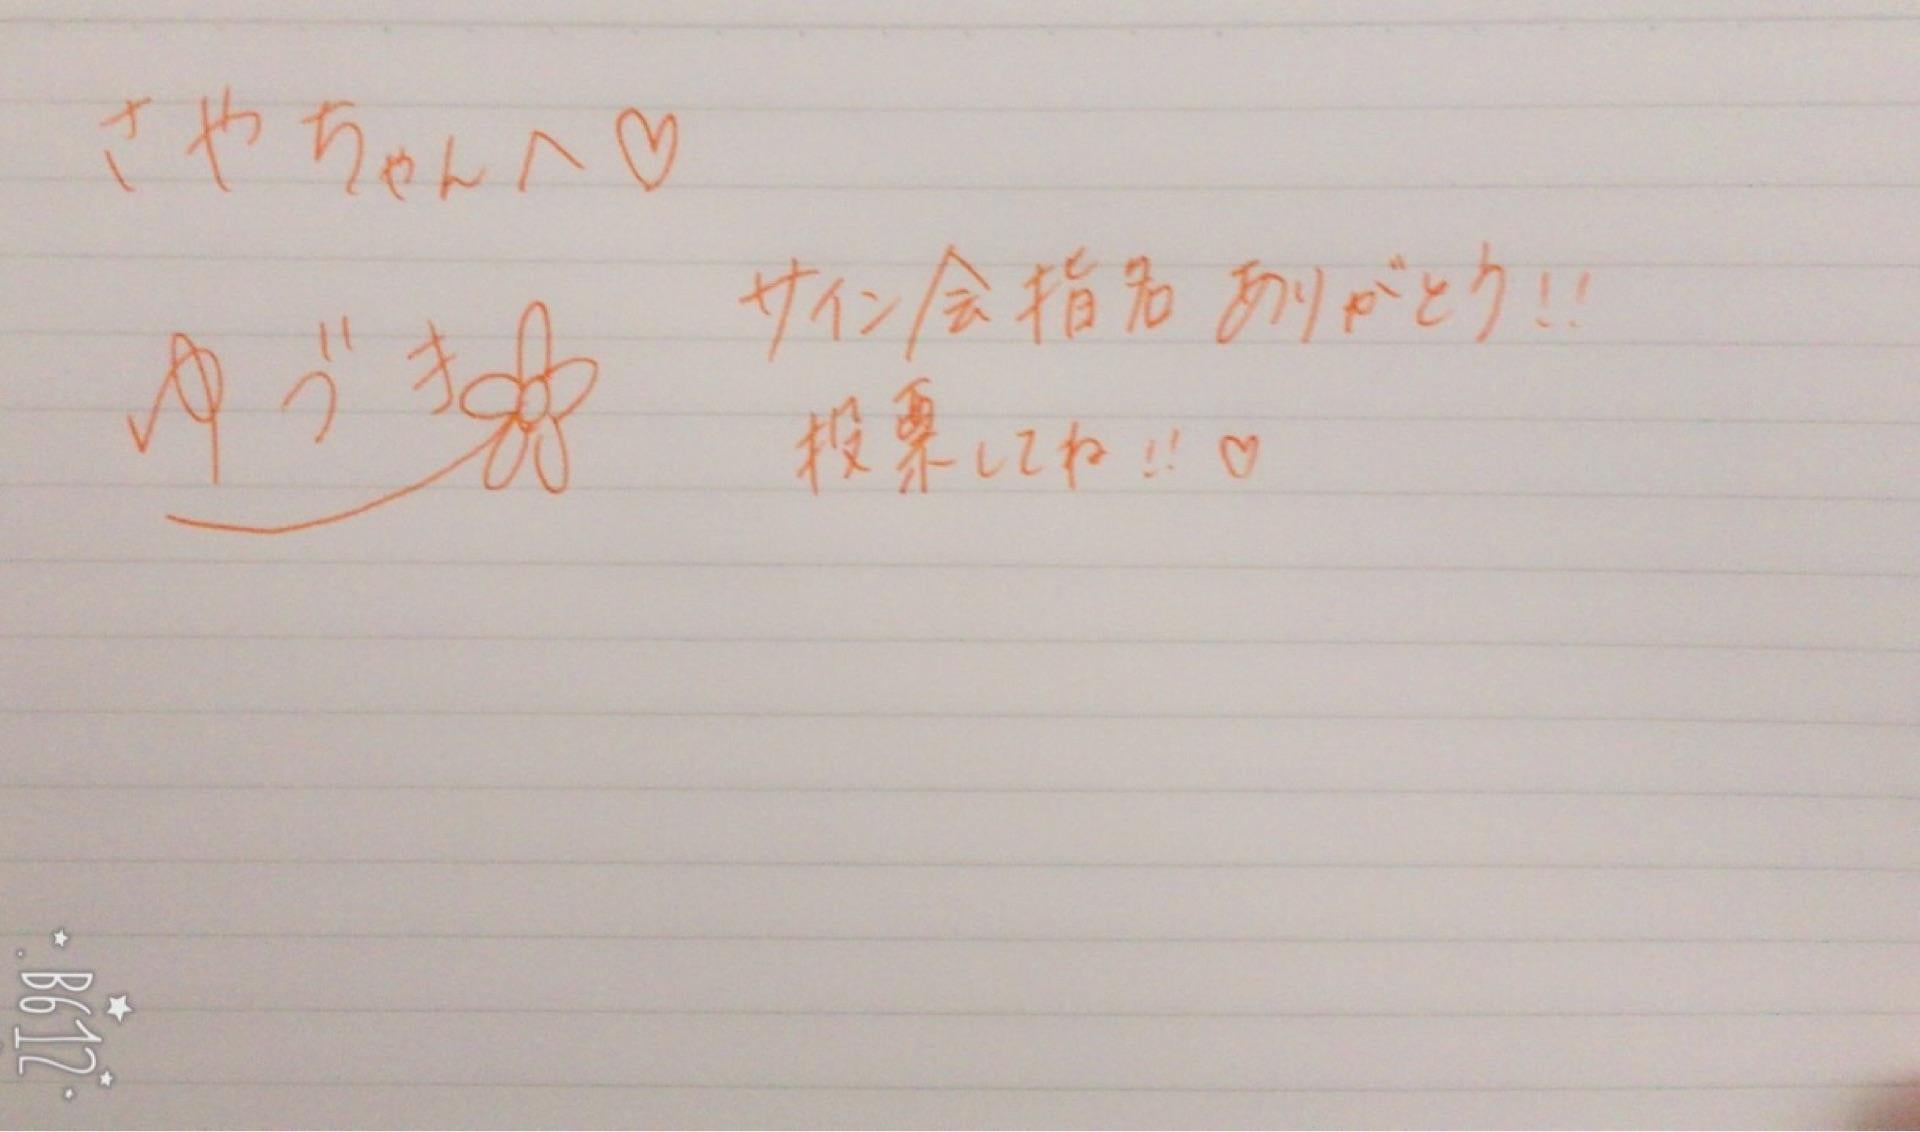 さやちゃんへ♡
ゆづき
サイン会指名ありがとう!!
投票してね!!♡
B612